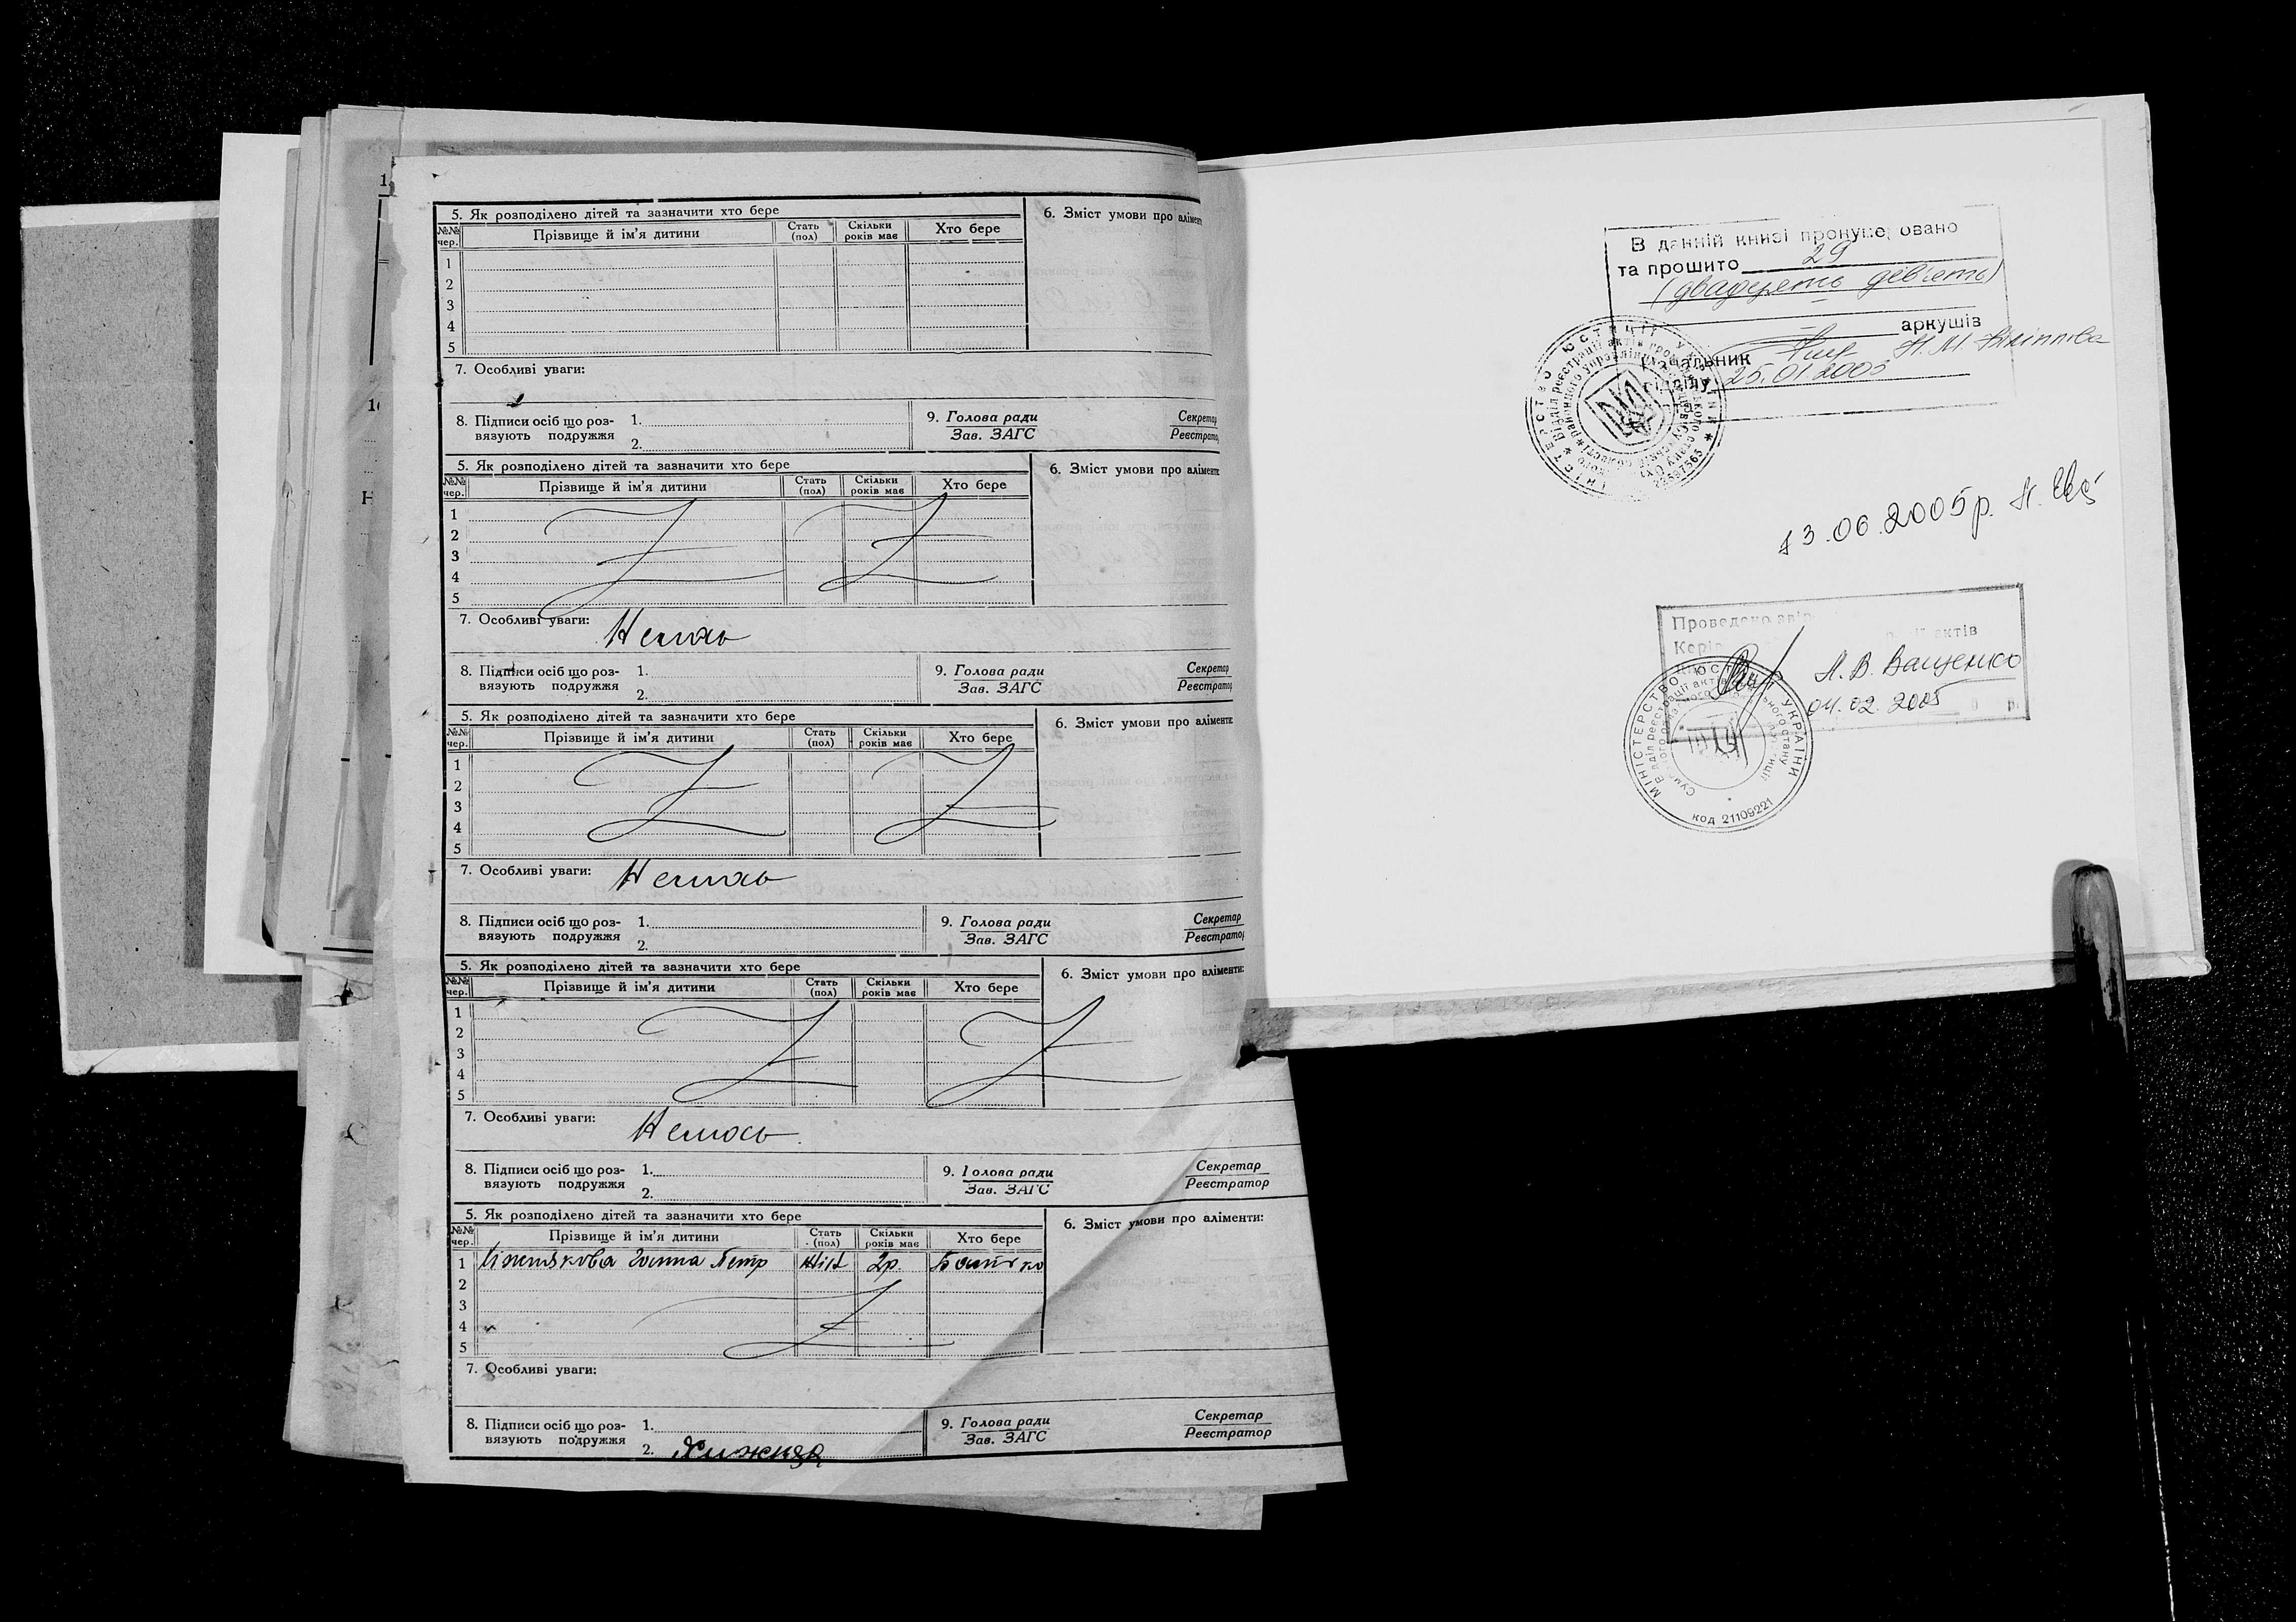 5. Як розподілено дітей та зазначити хто бере
6. Зміст умови про алімент
№№ чер. Прізвище й ім'я дитини Стать (пол) Скільки років має Хто бере
1
2
3
4
5
7. Особливі уваги:
8. Підписи осіб що роз- 1.
вязують подружжя 2.
9. Голова ради Секретар
Зав. ЗАГС Реєстратор
5. Як розподілено дітей та зазначити хто бере
6. Зміст умови про аліменти
№№ чер. Прізвище й ім'я дитини Стать (пол) Скільки років має Хто бере
1
2
3
4
5
7. Особливі уваги:
8. Підписи осіб що роз- 1.
вязують подружжя 2.
9. Голова ради Секретар
Зав. ЗАГС Реєстратор
5. Як розподілено дітей та зазначити хто бере
6. Зміст умови про аліменти
№№ чер. Прізвище й ім'я дитини Стать (пол) Скільки років має Хто бере
1
2
3
4
5
7. Особливі уваги:
8. Підписи осіб що роз- 1.
вязують подружжя 2.
9. Голова ради Секретар
Зав. ЗАГС Реєстратор
5. Як розподілено дітей та зазначити хто бере
6. Зміст умови про аліменти:
№№ чер. Прізвище й ім'я дитини Стать (пол) Скільки років має Хто бере
1
2
3
4
5
7. Особливі уваги:
8. Підписи осіб що роз- 1.
вязують подружжя 2.
9. Голова ради Секретар
Зав. ЗАГС Реєстратор
5. Як розподілено дітей та зазначити хто бере
6. Зміст умови про аліменти:
№№ чер. Прізвище й ім'я дитини Стать (пол) Скільки років має Хто бере
1 Петр 2р. Батько
2
3
4
5
7. Особливі уваги:
8. Підписи осіб що роз- 1.
вязують подружжя 2. Хижняк
9. Голова ради Секретар
Зав. ЗАГС Реєстратор
В данній книзі пронумеровано
та прошито 29
(двадцять дев'ять)
аркушів
Начальник Н.М.
відділу 25.01 2005
13.06.2005р.
Проведено
актів
Л.В. Ващенко
04.02.2005 р.
МІНІСТЕРСТВО ЮСТИЦІЇ УКРАЇНИ
код 21109221